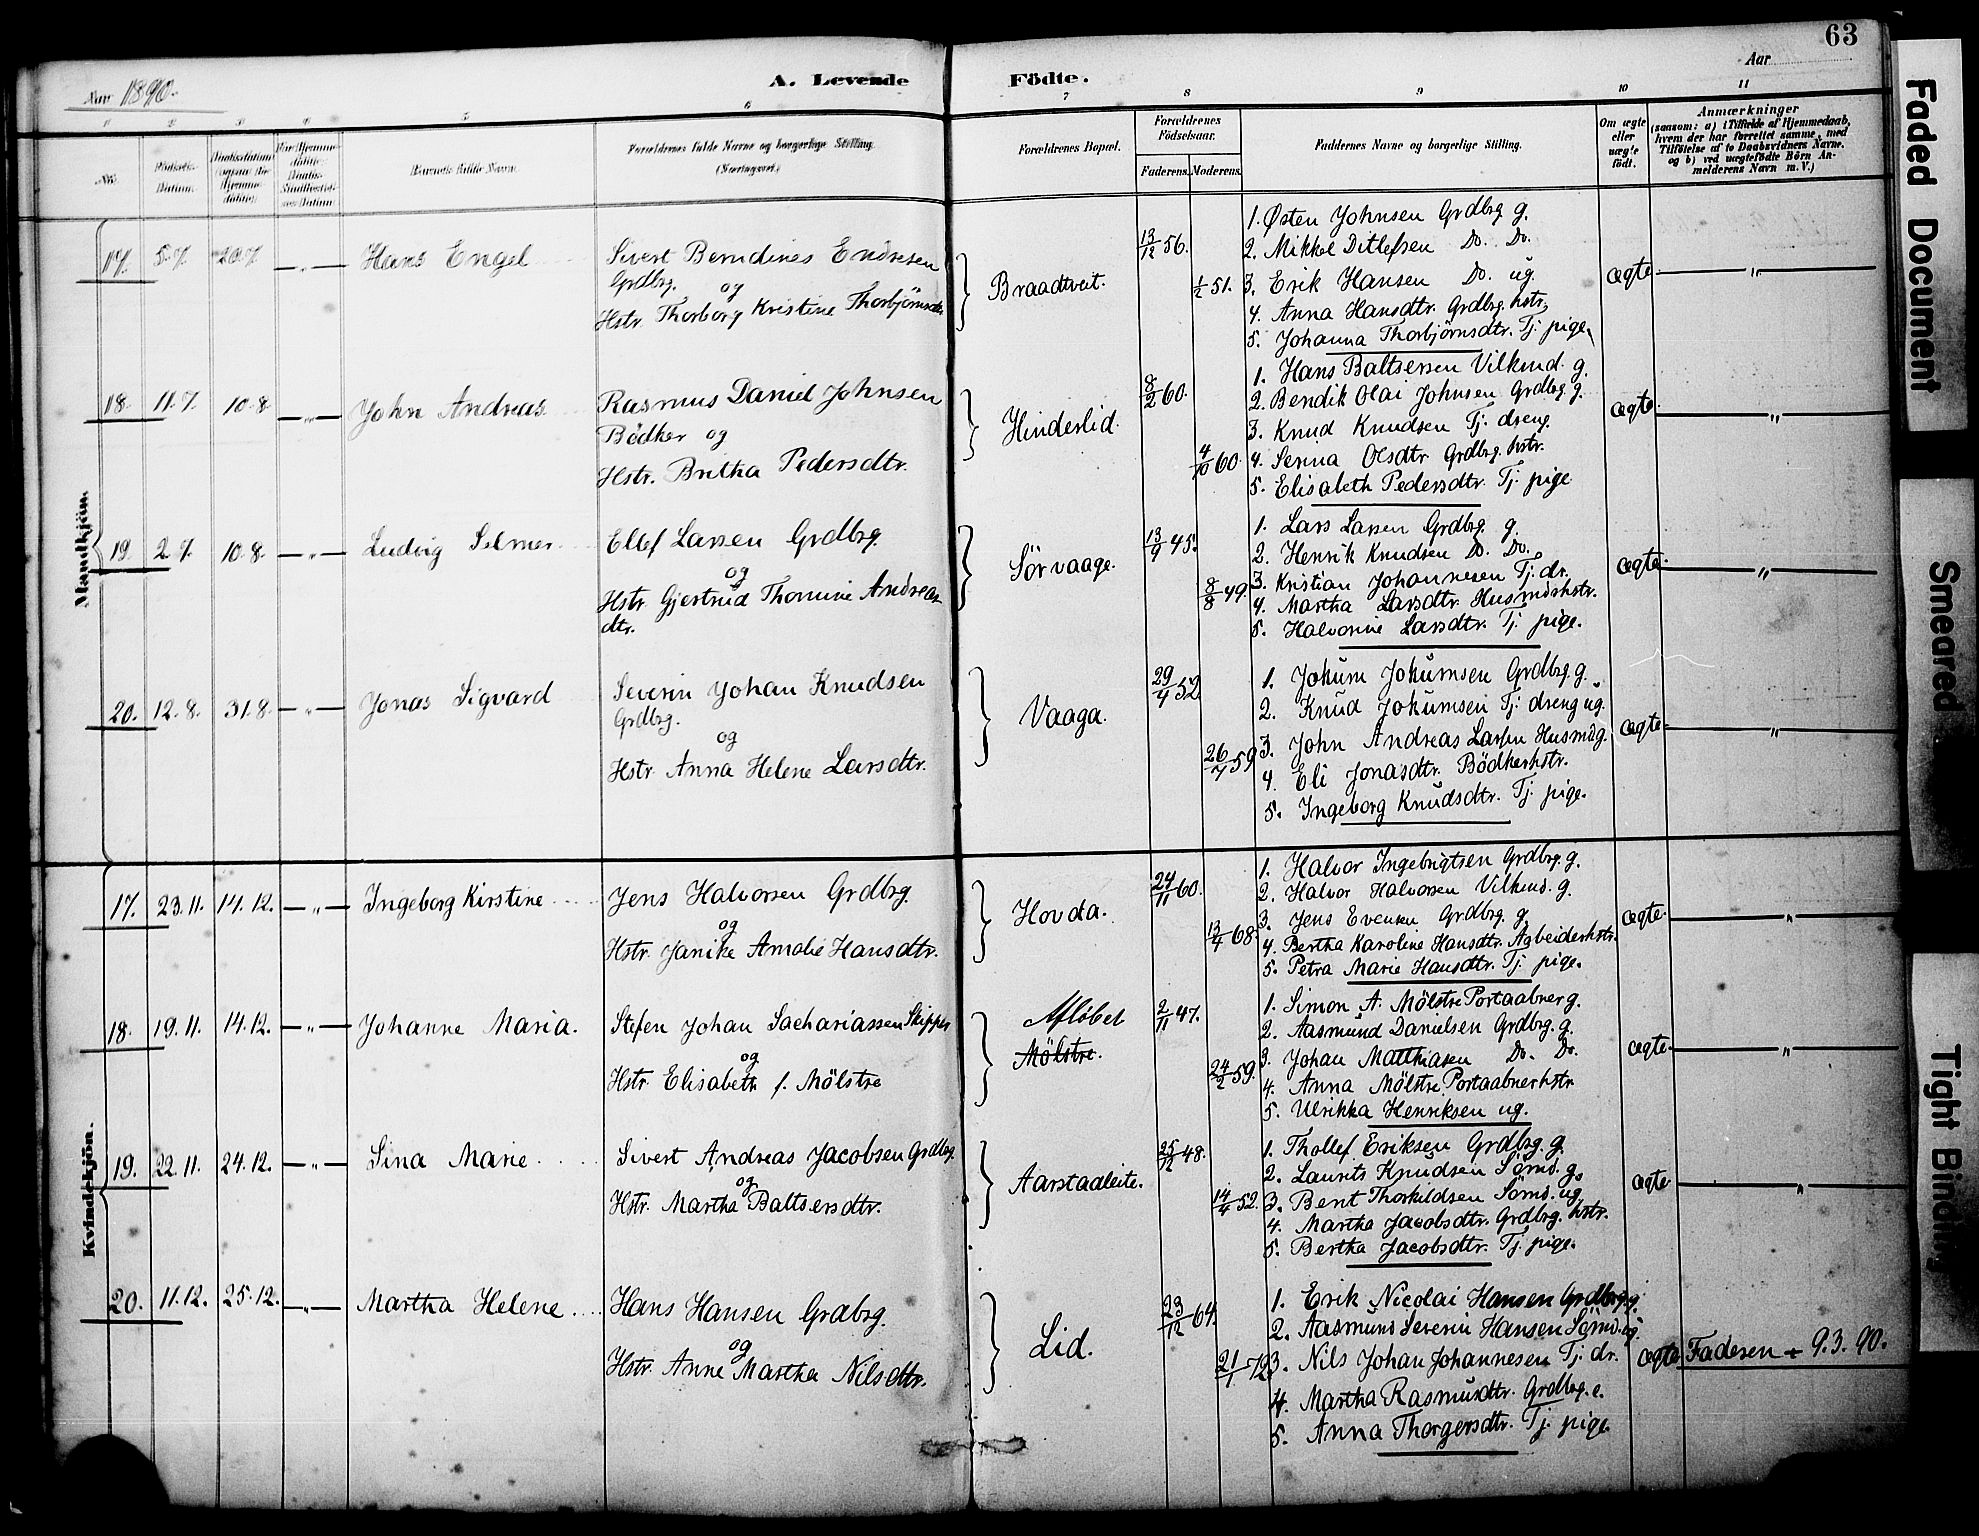 63
Aar 1890.
A. Levende Födte.
Aar
1 2 3 4 5 6 7 8 9 10 11
No.
Födsels-Datum.
Barnets fulde Navn.
Forældrenes fulde Navne og borgerlige Stilling.
(Næringsvei.)
Forældrenes Bopæl.
Forældrenes Födselsaar.
Faderens. Moderens.
Faddernes Navne og borgerlige Stilling.
Om ægte eller uægte födt.
Anmærkninger
(saasom: a) i Tilfælde af Hjemmedaab,
hvem der har forrettet samme, med
Tilföielse af to Daabsvidners Navne.
og b) ved uægtefödte Börn An-
melderens Navn m. V.)
Mandkjön.
17. 5.7. 20.7 — „ — Hans Engel
Sivert Berndines Endresen
Grdbrg. og
Hstr. Thorborg Kristine Thorbjörnsdtr
Braadtveit.
13/12 56.
1/2 51.
1. Østen Johnsen Grdbrg g.
2. Mikkel Ditlefsen Do. Do.
3. Erik Hansen Do. ug.
4. Anna Hansdtr. Grdbrg. hstr.
5. Johanna Thorbjørnsdtr. Tj. pige.
ægte — „ —
18. 11.7. 10.8 — „ — John Andreas
Rasmus Daniel Johnsen
Bödker og
Hstr. Britha Pedersdtr.
Hinderlid.
8/2 60.
4/10 60.
1. Hans Baltsersen Vilkmd. g.
2. Bendik Olai Johnsen Grdbrg. g.
3. Knud Knudsen Tj. dreng.
4. Serina Olsdtr Grdbrg. hstr.
5. Elisabeth Pedersdtr. Tj. pige
ægte. — „ —
19 2.7. 10.8. — „ — Ludvig Selmer
Ellef Larsen Grdbrg.
og
Hstr. Gjertrud Thomine Andreas
dtr.
Sörvaage.
13/9 45.
8/8 49.
1. Lars Larsen Grdbrg. g.
2. Henrik Knudsen Do. Do.
3. Kristian Johannesen Tj. dr.
4. Martha Larsdtr. Husmdshstr.
5. Halvorine Larsdtr. Tj. pige.
ægte. — „ —
20. 12.8. 31.8. — „ — Jonas Sigvard
Severin Johan Knudsen
Grdbrg.
og
Hstr. Anna Helene Larsdtr.
Vaaga.
29/4 52
26/7 59
1. Jokum Jokumsen Grdbrg. g.
2. Knud Jokumsen Tj. dreng ug.
3. John Andreas Larsen Husmd g.
4. Eli Jonasdtr. Bödkerhstr.
5. Ingeborg Knudsdtr. Tj. pige.
ægte — „ —
Kvindekjön.
17. 23.11. 14.12. — „ — Ingeborg Kirstine
Jens Halvorsen Grdbrg.
og
Hstr. Janike Amalie Hansdtr.
Hovda.
24/11 60.
13/4 68
1. Halvor Ingebrigtsen Grdbrg. g.
2. Halvor Halvorsen Vilkmd. g.
3. Jens Evensen Grdbrg. g.
4. Bertha Karoline Hansdtr. Arbeiderhstr.
5. Petra Marie Hansdtr. Tj. pige.
ægte. — „ —
18. 19.11. 14.12. — „ — Johanne Maria.
Stefen Johan Sachariassen Skipper
og
Hstr. Elisabeth f. Mölstre
Aflöbet
Mölstre.
2/11 47.
24/2 59.
1. Simon A. Mölstre Postaabner g.
2. Aasmund Danielsen Grdbrg. g.
3. Johan Matthiasen Do. Do.
4. Anna Mölstre Postaabnerhstr
5. Ulrikka Henriksen ug.
ægte. — „ —
19. 22.11. 24.12. — „ — Sina Marie.
Sivert Andreas Jacobsen Grdbrg.
og
Hstr. Martha Baltsersdtr.
Aarstadleite.
25/12 48.
14/4 52.
1. Thollef Eriksen Grdbrg. g.
2. Laurits Knudsen Sömd. g.
3. Bent Thorkildsen Sömd. ug.
4. Martha Jacobsdtr. Grdbrg. hstr.
5. Bertha Jacobsdtr. Tj. pige.
ægte — „ —
20. 11.12. 25.12. — „ — Martha Helene
Hans Hansen Grdbrg.
og
Hstr. Anne Martha Nilsdtr.
Lid.
23/12 64.
21/1 72
1. Erik Nicolai Hansen Grdbrg. g.
2. Aasmund Severin Hansen Sömd. ug.
3. Nils Johan Johannesen Tj. dr.
4. Martha Rasmusdtr. Grdbrg. e.
5. Anna Thorgersdtr. Tj. pige.
ægte Faderen + 9.3.90.
Faded Document
Smeared
Tight Binding